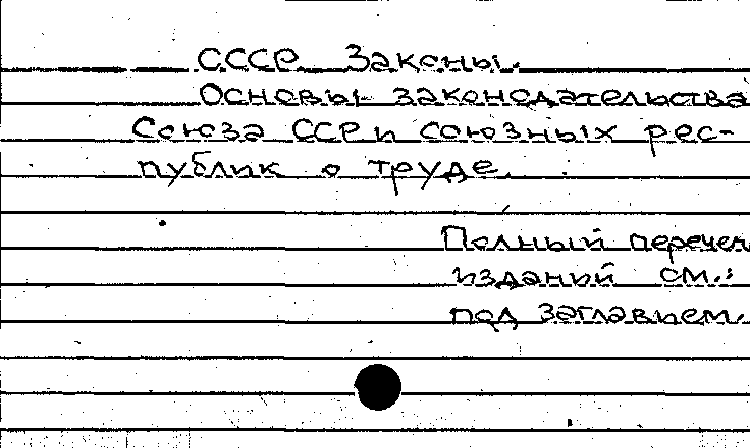 СССР. Законы.
Основы законодательства
Союза ССР и союзных рес-
публик о труде.
Полный перечен
изданий см.:
под заглавием.